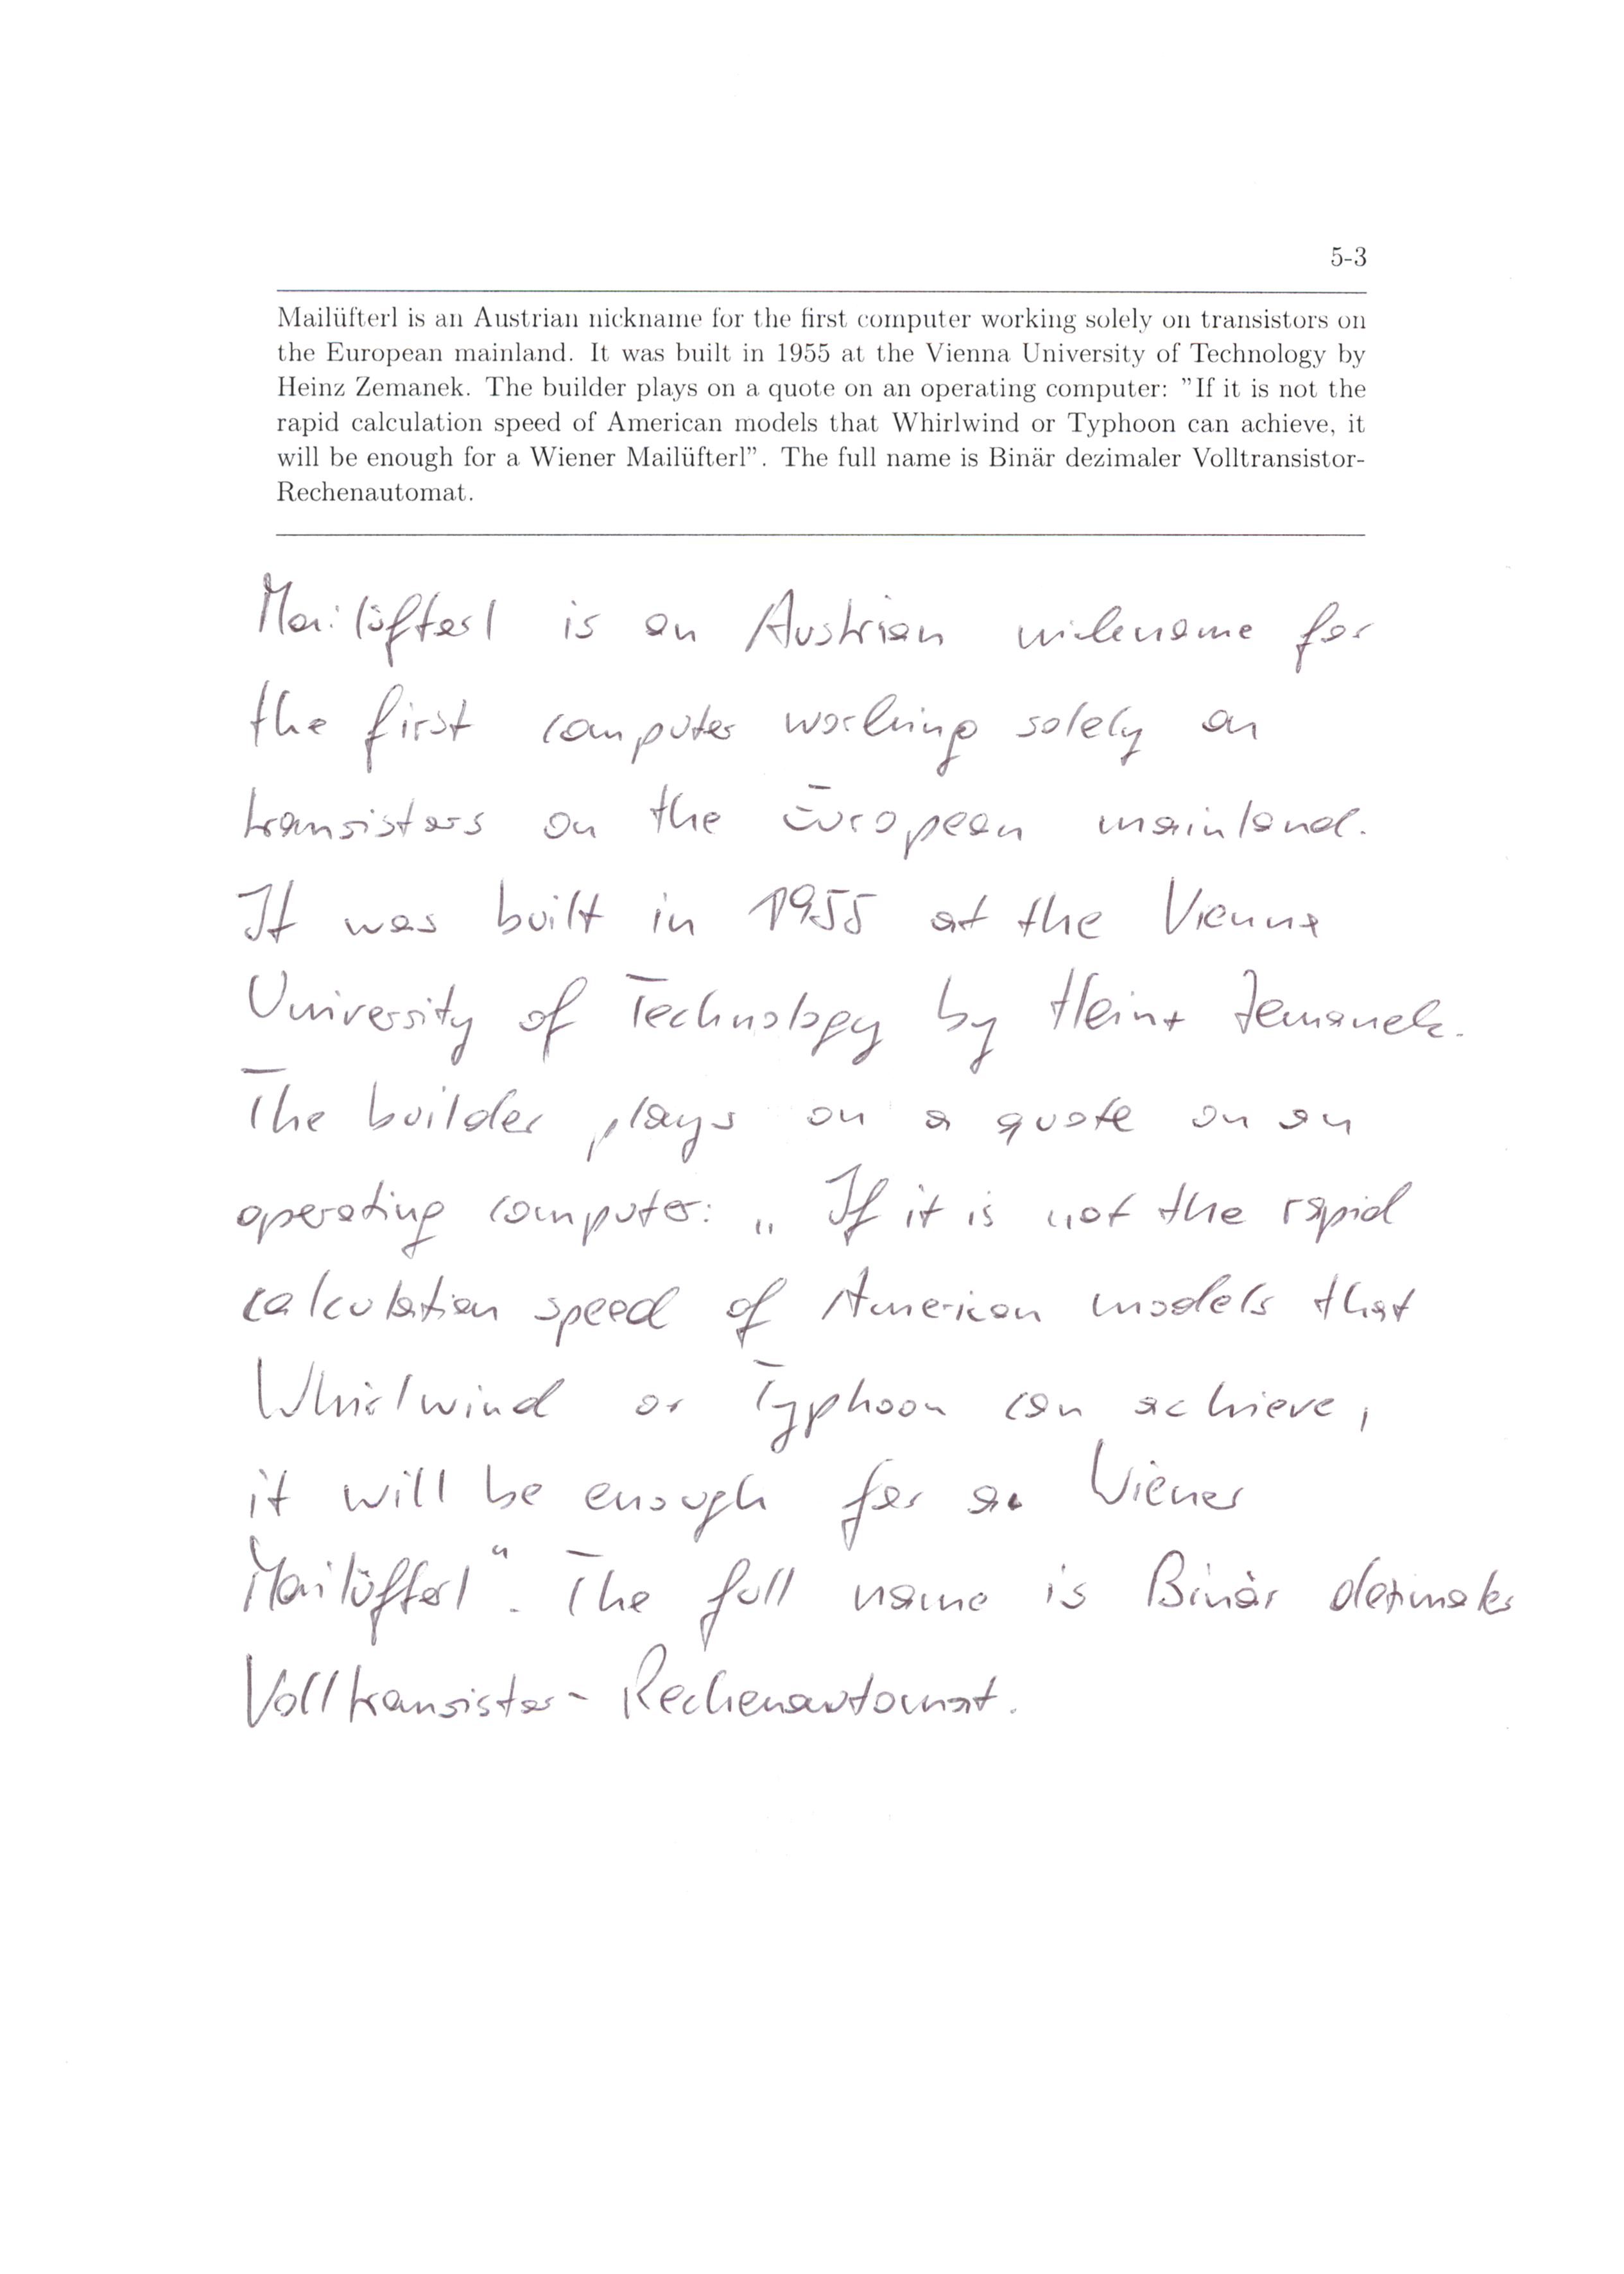 5-3
Mailüfterl is an Austrian nickname for the first computer working solely on transistors on
the European mainland. It was built in 1955 at the Vienna University of Technology by
Heinz Zemanek. The builder plays on a quote on an operating computer: "If it is not the
rapid calculation speed of American models that Whirlwind or Typhoon can achieve, it
will be enough for a Wiener Mailüfterl". The full name is Binär dezimaler Volltransistor-
Rechenautomat.
Mailüfterl is an Austrian nickname for
the first computer working solely on
transistors on the European mainland.
It was built in 1955 at the Vienna
University of Technology by Heinz Zemanek.
The builder plays on a quote on an
operating computer: „If it is not the rapid
calculation speed of American models that
Whirlwind or Typhoon can achieve,
it will be enough for a Wiener
Mailüfterl“. The full name is Binär dezimaler
Volltransistor-Rechenautomat.